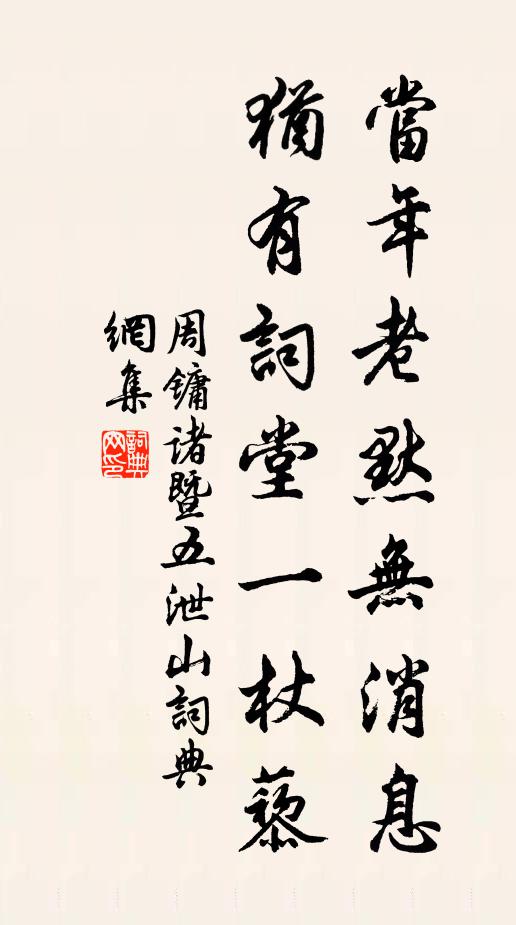 當年老默無消息
猶有詞堂一杖藜
周鏞諸暨五泄山詞典
網集
詞典網印